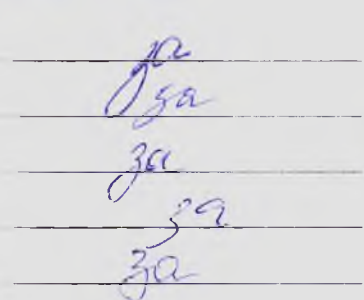 за
за
за
за
за